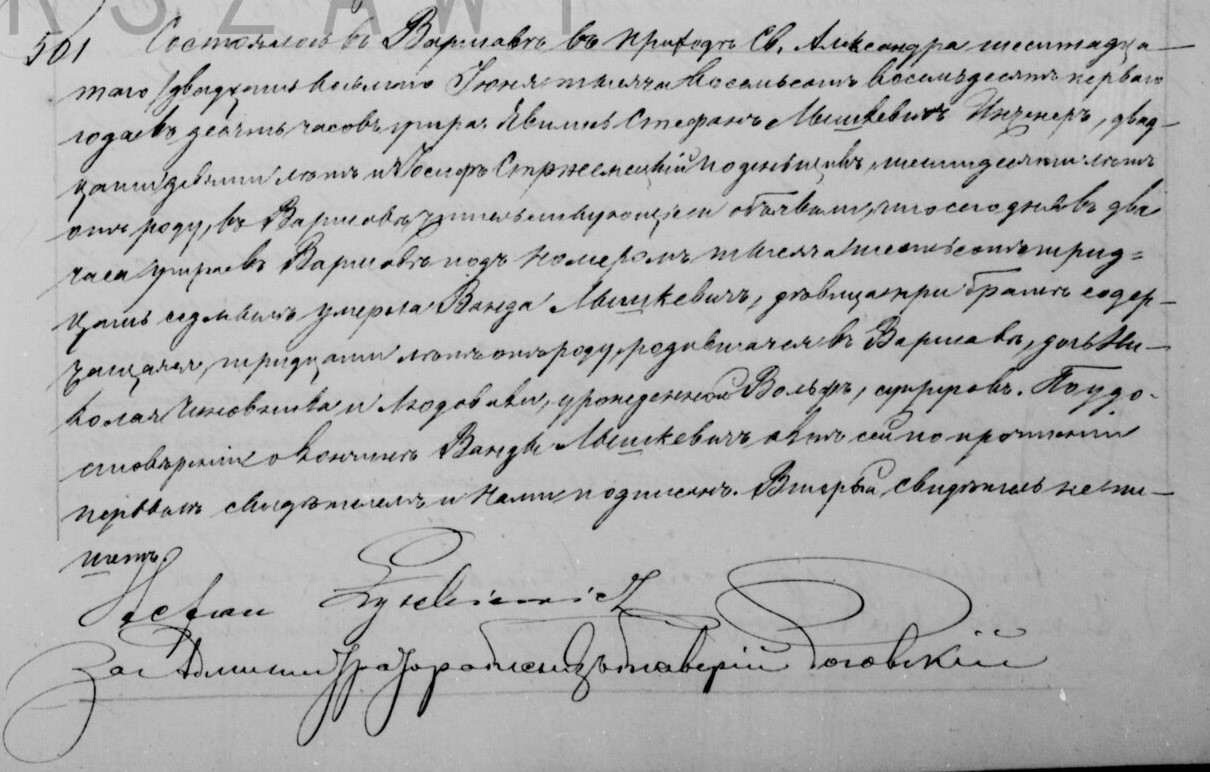 RSZAWI
501 Состоялось въ Варшавѣ въ приходѣ Св. Александра шестнадца-
таго /двадцать восьмаго Іюня тысяча восемьсотъ восемьдесятъ перваго
года въ десять часовъ утра. Явились Стефанъ Мышкевичъ Инженеръ, двад-
цати девяти лѣтъ и Іосифъ Стржемецкій поденьщикъ, шестидесяти лѣтъ
отъ роду, въ Варшавѣ жительствующіе и объявили, что сегодня въ два
часа утра въ Варшавѣ подъ номеромъ тысяча шестьсотъ трид=
цать седьмымъ умерла Ванда Мышкевичъ, дѣвица при братѣ содер-
жащаяся, тридцати лѣтъ отъ роду, родившаяся въ Варшавѣ, дочь Ни-
колая чиновника и Людовики, урожденной Вольфъ, супруговъ. По удо-
стовѣреніи о кончинѣ Ванды Мышкевичъ актъ сей по прочтеніи
первымъ свидѣтелемъ и Нами подписанъ. Вторый свидѣтель не пи-
шетъ.
За Администратора Ксендзъ Ксаверій Роговскій